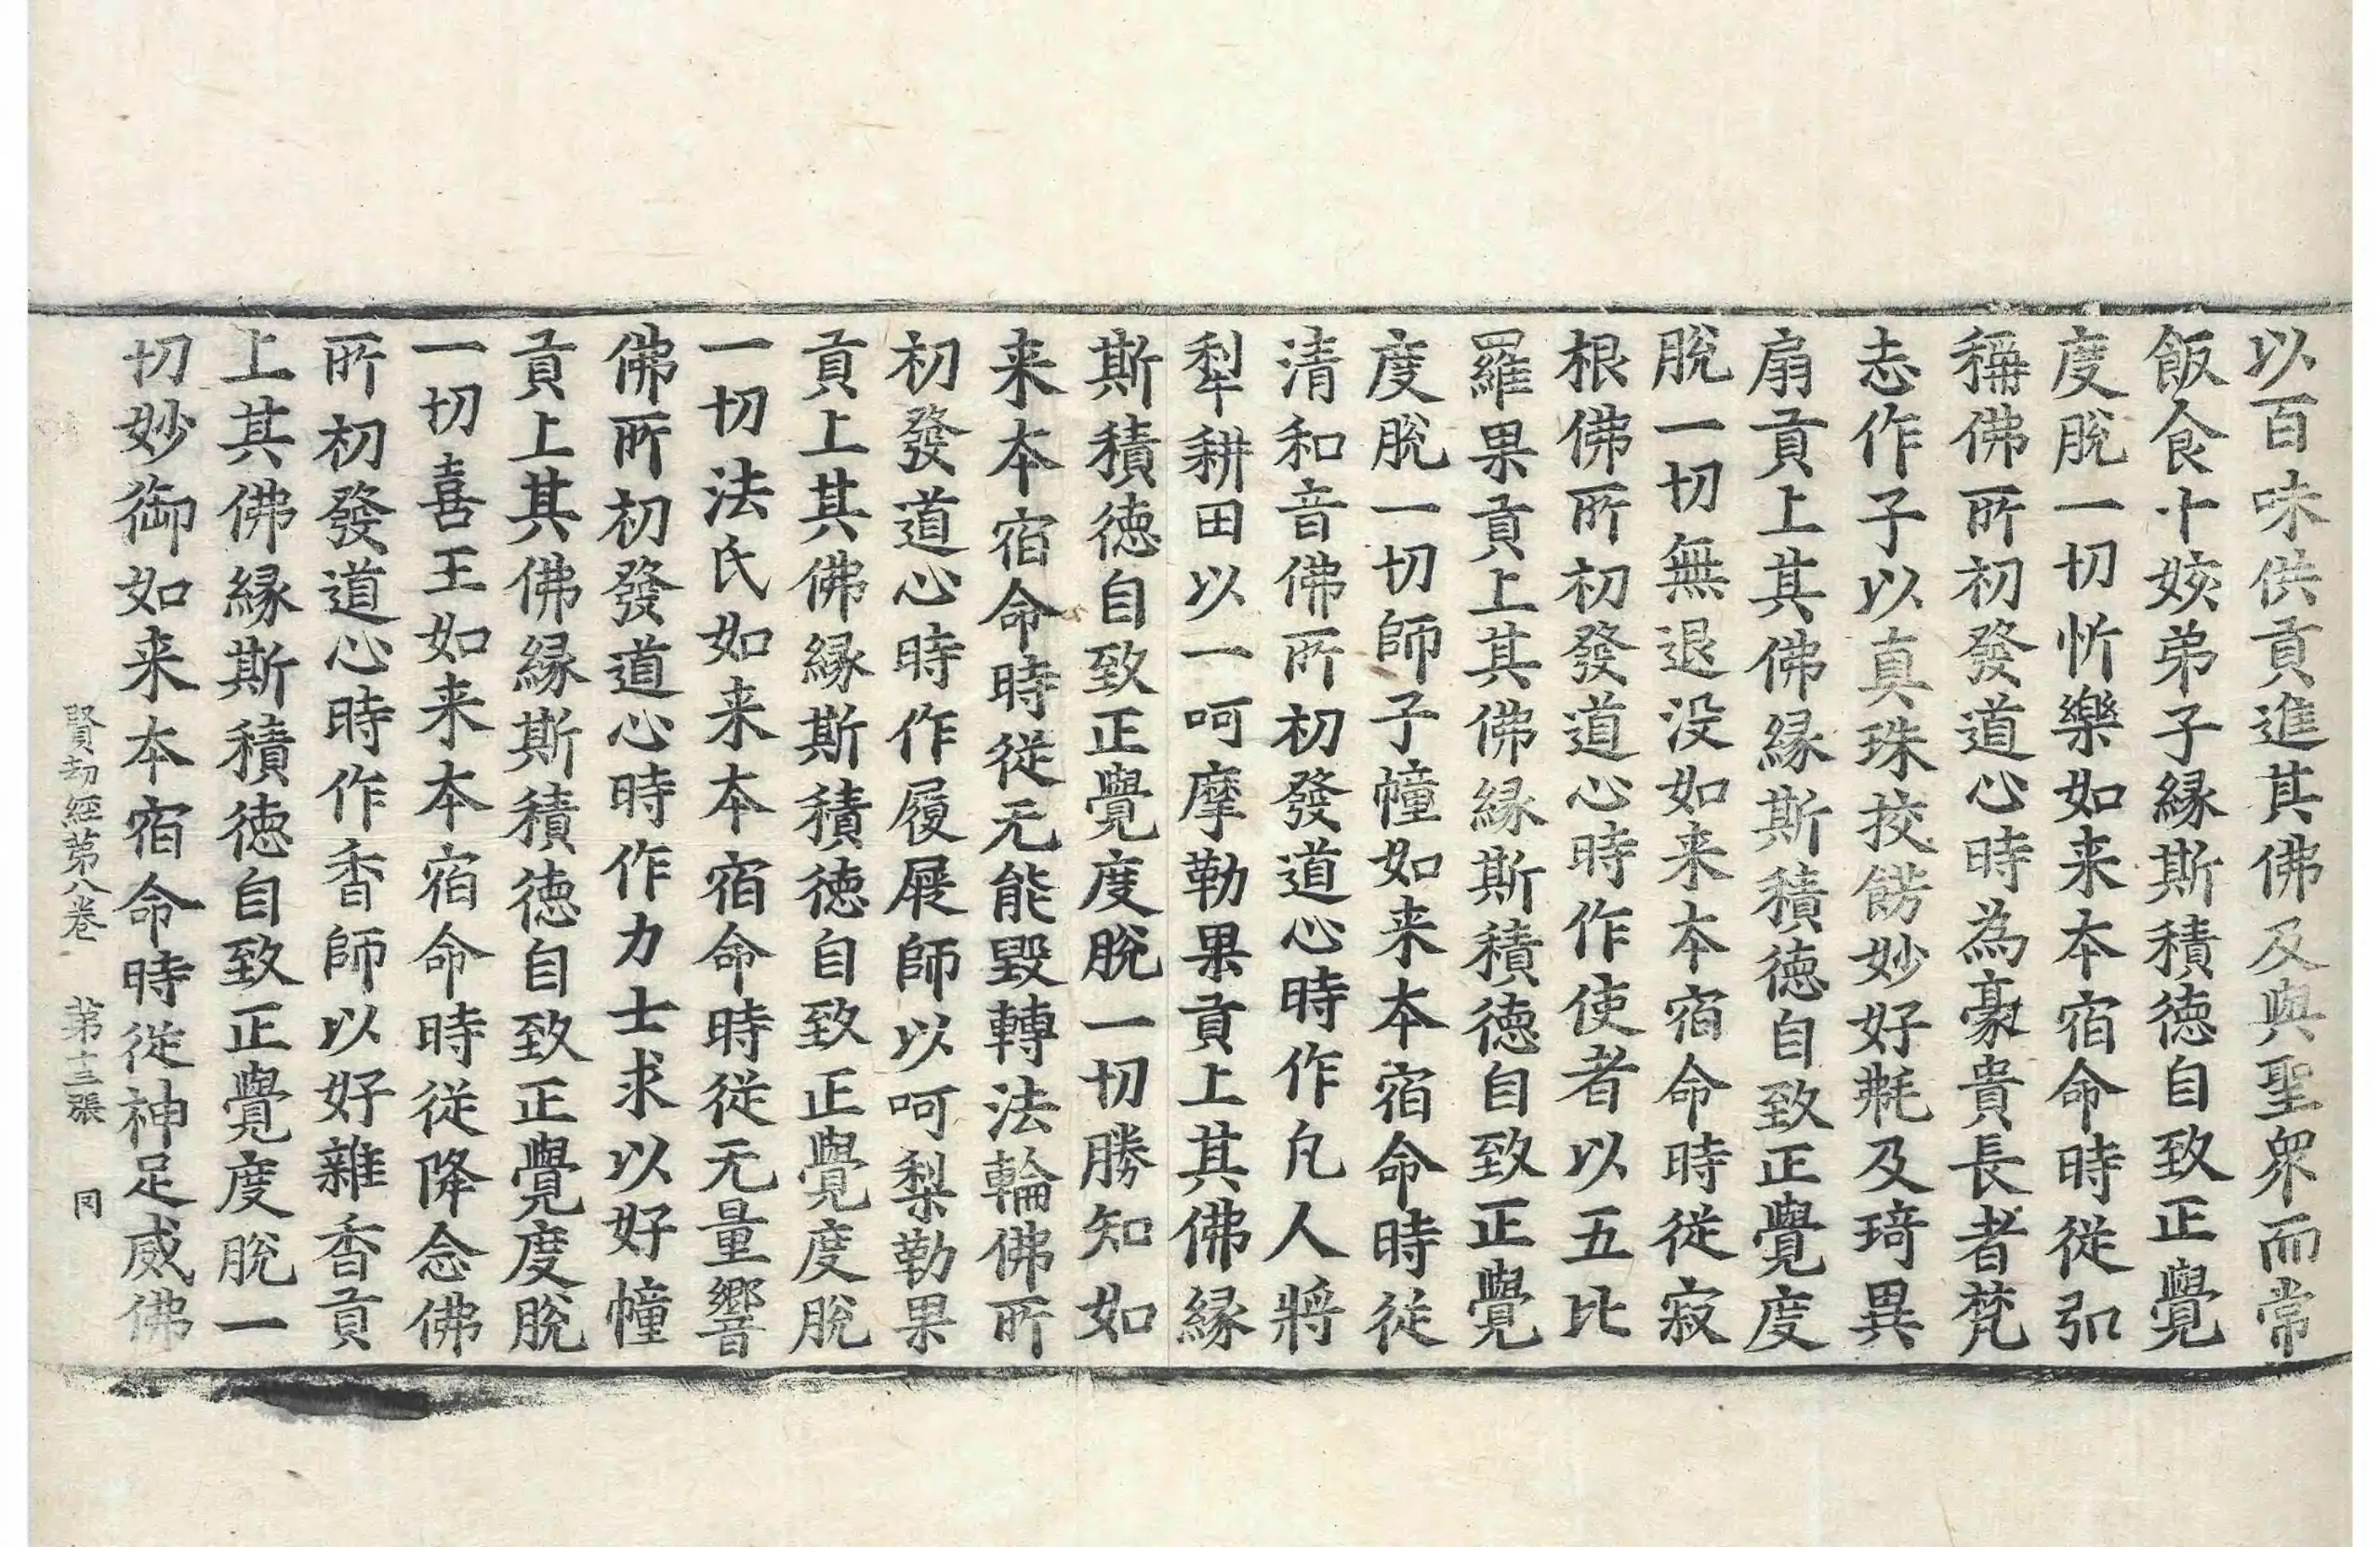 以百味供貢進其佛及與聖衆而常
飯食十姟弟子縁斯積徳自致正覺
度脫一切忻樂如来本宿命時從弘
稱佛所初發道心時為豪貴長者梵
志作子以真珠挍餝妙好毦及琦異
扇貢上其佛縁斯積徳自致正覺度
脫一切無退没如来本宿命時從寂
根佛所初發道心時作使者以五比
羅果貢上其佛縁斯積徳自致正覺
度脫一切師子幢如来本宿命時從
清和音佛所初發道心時作凢人將
犁耕田以一呵摩勒果貢上其佛縁
斯積徳自致正覺度脫一切勝知如
来本宿命時從无能毀轉法輪佛所
初發道心時作履屐師以呵梨勒果
貢上其佛縁斯積徳自致正覺度脫
一切法氏如来本宿命時從无量響
佛所初發道心時作力士求以好幢
貢上其佛縁斯積徳自致正覺度脫
一切喜王如来本宿命時從降念佛
所初發道心時作香師以好雜香貢
上其佛縁斯積徳自致正覺度脫一
切妙御如来本宿命時從神足威佛
賢劫經第八卷 第十三張 同